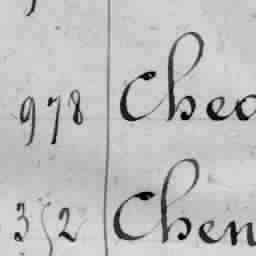 978 Chea
352 Chen